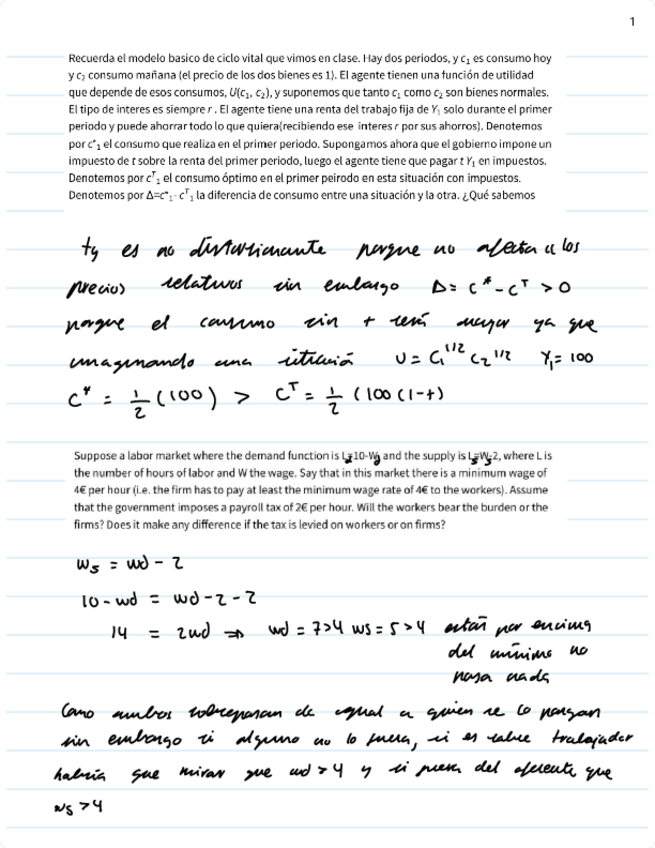 1
Recuerda el modelo basico de ciclo vital que vimos en clase. Hay dos periodos, y c₁ es consumo hoy
y c₂ consumo mañana (el precio de los dos bienes es 1). El agente tienen una función de utilidad
que depende de esos consumos, U(c₁, c₂), y suponemos que tanto c₁ como c₂ son bienes normales.
El tipo de interes es siempre r . El agente tiene una renta del trabajo fija de Y₁ solo durante el primer
periodo y puede ahorrar todo lo que quiera(recibiendo ese interes r por sus ahorros). Denotemos
por c*₁ el consumo que realiza en el primer periodo. Supongamos ahora que el gobierno impone un
impuesto de t sobre la renta del primer periodo, luego el agente tiene que pagar t Y₁ en impuestos.
Denotemos por cᵀ₁ el consumo óptimo en el primer peirodo en esta situación con impuestos.
Denotemos por Δ=c*₁- cᵀ₁ la diferencia de consumo entre una situación y la otra. ¿Qué sabemos
ty es no distorsionante porque no afecta a los
precios relativos sin embargo Δ= C* - Cᵀ > 0
porque el consumo sin t será mayor ya que
imaginando una situación U = C₁^1/2 C₂^1/2 Y₁ = 100
C* = 1/2 (100) > Cᵀ = 1/2 (100 (1-t)
Suppose a labor market where the demand function is L=10-W and the supply is L=W-2, where L is
the number of hours of labor and W the wage. Say that in this market there is a minimum wage of
4€ per hour (i.e. the firm has to pay at least the minimum wage rate of 4€ to the workers). Assume
that the government imposes a payroll tax of 2€ per hour. Will the workers bear the burden or the
firms? Does it make any difference if the tax is levied on workers or on firms?
Ws = wd - 2
10 - wd = wd - 2 - 2
14 = 2wd ⇒ wd = 7>4 ws = 5 >4 están por encima
del mínimo no
pasa nada
Como ambos sobrepasan da igual a quien se lo pongan
sin embargo si alguno no lo fuera, si es sobre trabajador
habría que mirar que wd > 4 y si fuera del oferente que
ws > 4